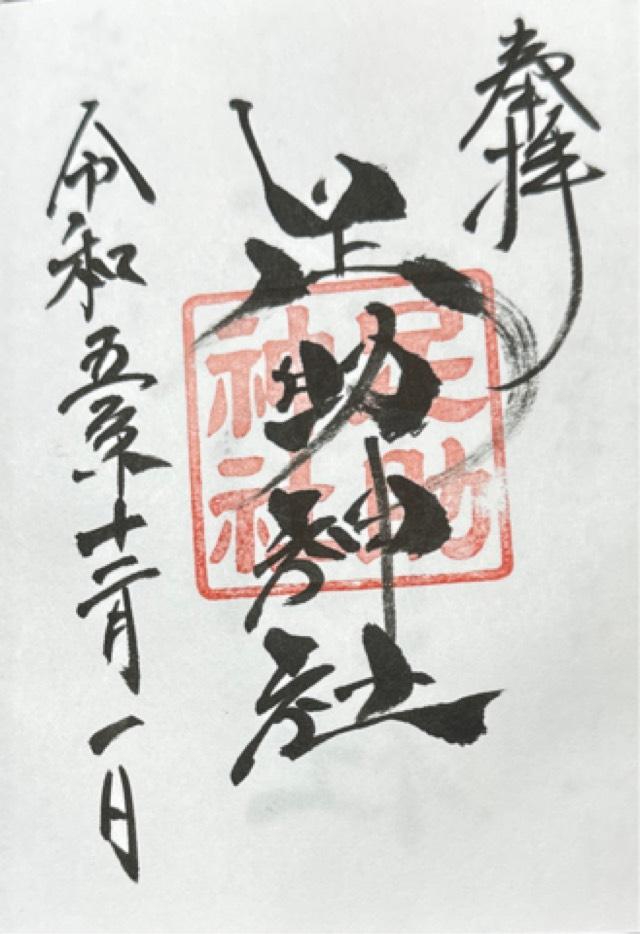 奉拝
足助神社
足助
神社
令和五年十二月一日